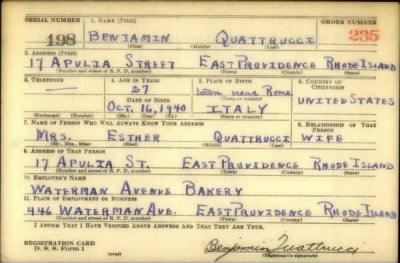 SERIAL NUMBER 1. NAME (Print) ORDER NUMBER
198 BENJAMIN QUATTRUCCI 235
(First) (Middle) (Last)
2. ADDRESS (Print)
17 APULIA STREET EAST PROVIDENCE RHODE ISLAND
(Number and street or R. F. D. number) (Town) (County) (State)
3. TELEPHONE 4. AGE IN YEARS 5. PLACE OF BIRTH 6. COUNTRY OF CITIZENSHIP
— 27 town near Rome
DATE OF BIRTH (Town or county) UNITED STATES
OCT. 16, 1940 ITALY
(Exchange) (Number) (Mo.) (Day) (Yr.) (State or country)
7. NAME OF PERSON WHO WILL ALWAYS KNOW YOUR ADDRESS 8. RELATIONSHIP OF THAT PERSON
MRS. ESTHER QUATTRUCCI WIFE
(Mr., Mrs., Miss) (First) (Middle) (Last)
9. ADDRESS OF THAT PERSON
17 APULIA ST. EAST PROVIDENCE RHODE ISLAND
(Number and street or R. F. D. number) (Town) (County) (State)
10. EMPLOYER'S NAME
WATERMAN AVENUE BAKERY
11. PLACE OF EMPLOYMENT OR BUSINESS
446 WATERMAN AVE. EAST PROVIDENCE RHODE ISLAND
(Number and street or R. F. D. number) (Town) (County) (State)
I AFFIRM THAT I HAVE VERIFIED ABOVE ANSWERS AND THAT THEY ARE TRUE.
REGISTRATION CARD
D. S. S. Form 1 (over) Benjamin Quattrucci
(Registrant's signature)